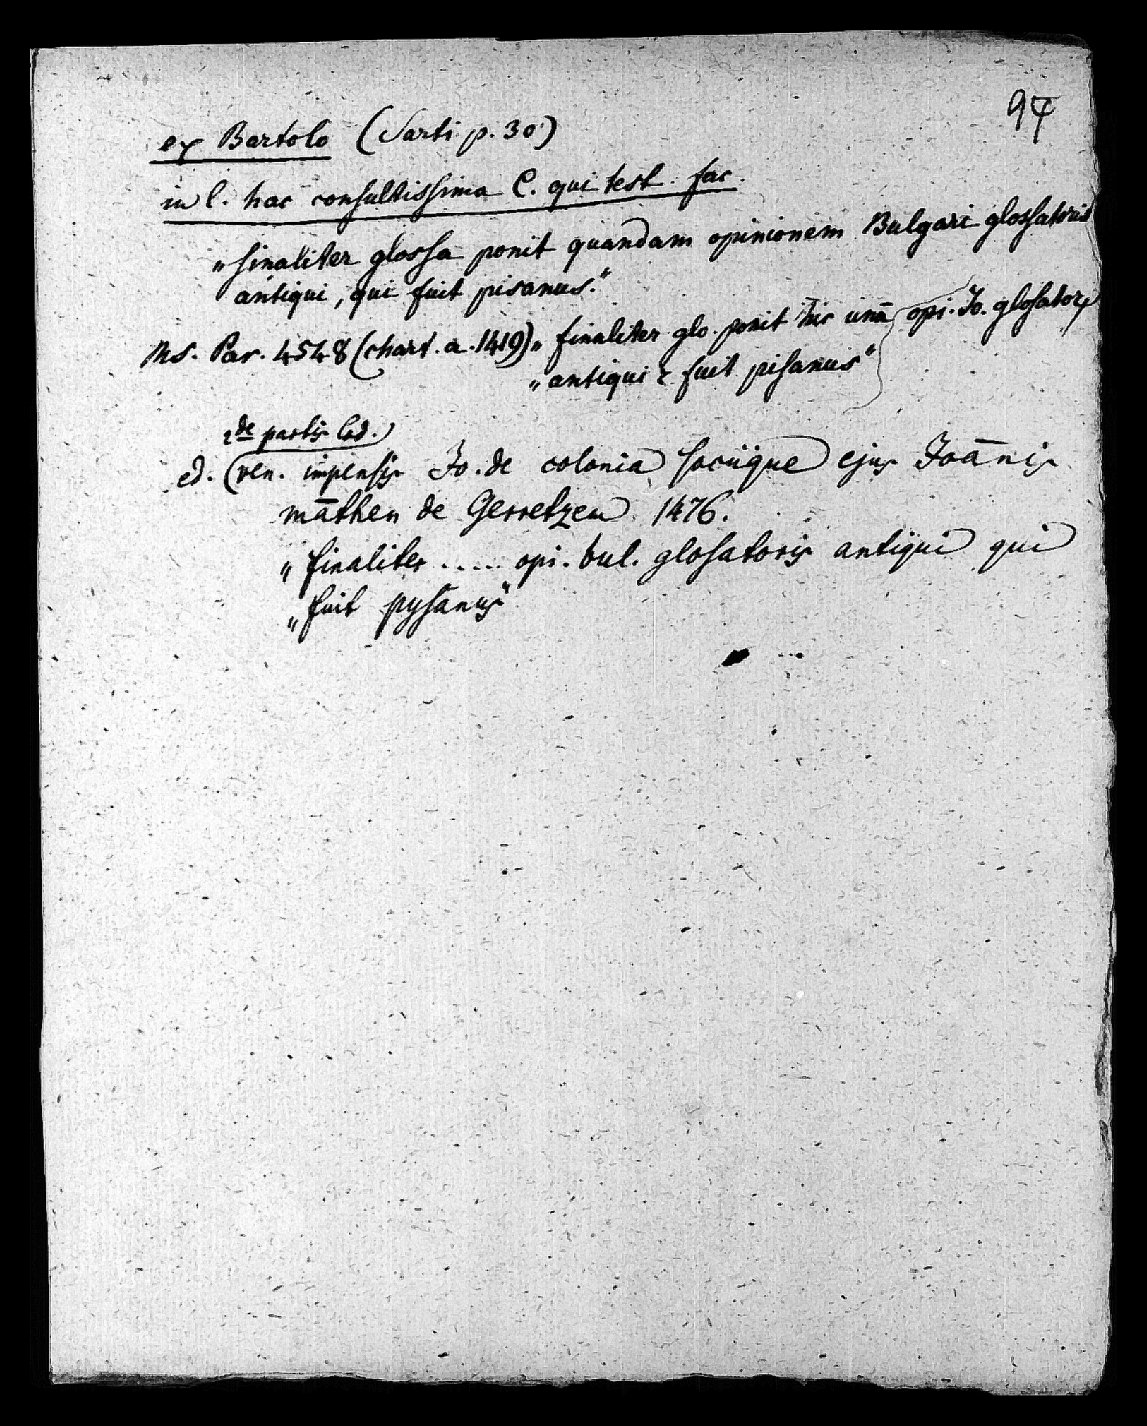 97
ex Bartolo (Sarti p. 30)
in l. hac consultissima C. qui test. fac.
„finaliter glossa ponit quandam opinionem Bulgari glossatoris
antiqui, qui fuit pisanus.“
Ms. Par. 4548 (chart. a. 1419) „finaliter glo. ponit hic unā opi. Jo. glosatoꝝ
„antiqui & fuit pisanus“
2de partis Cod.
ed. (ven. impensis Jo. de colonia sociique ejus Joānis
māthen de Gerretzem 1476.
„finaliter ..... opi. bul. glosatoris antiqui qui
„fuit pysanus“